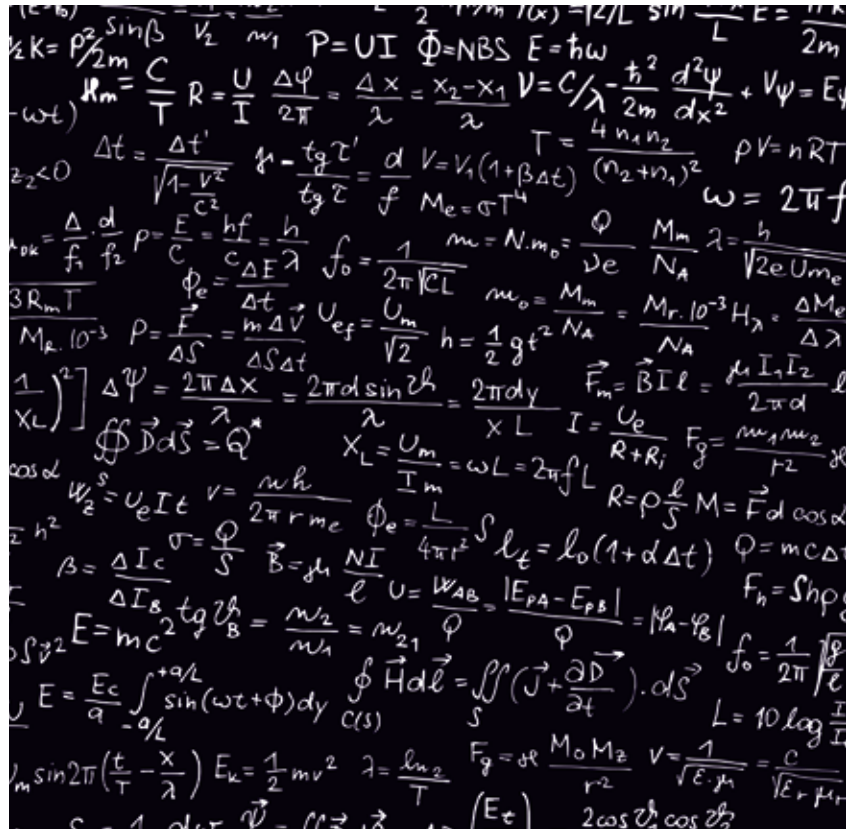 sinβ
V₂
n₁
½K = p²/2m P = UI Φ = NBS E = ħω L 2m
= C/T R = U/I Δφ/2π = Δx/λ = (x₂-x₁)/λ ν = C/λ -ħ²/2m d²ψ/dx² + Vψ = Eψ
-ωt)
z₂<0 Δt = Δt'/√(1-v²/c²) tgτ'/tgτ = d/f V = V₁(1+βΔt) T = 4n₁n₂/(n₂+n₁)² pV = nRT
Mₑ = σT⁴ ω = 2πf
= Δ/f₁ · d/f₂ p = E/C = hf/c = h/λ f₀ = 1/2π√CL m = N.m₀ = Q/νe Mm/NA λ = h/√2eUmₑ
ϕₑ = ΔE/Δt
3RmT/Mr.10⁻³ P = F⃗/ΔS = mΔv⃗/ΔSΔt Uef = Um/√2 h = 1/2 gt² m₀ = Mm/NA = Mr.10⁻³/NA Hλ = ΔMe/Δλ
1/XL)²] ΔΨ = 2πΔx/λ = 2πd sinϑ/λ = 2πdy/xL F⃗m = B⃗Iℓ = μI₁I₂/2πd ℓ
∯D⃗dS⃗ = Q* XL = Um/Im = ωL = 2πfL I = Ue/(R+Ri) Fg = m₁m₂/r²
cosα Wz = UeIt v = nh/2πrme ϕe = L/4πr² S R = ρ ℓ/S M = F⃗d cosα
h² σ = Q/S B⃗ = μ NI/ℓ ℓt = ℓ₀(1+αΔt) Q = mcΔt
β = ΔIc/ΔIB U = WAB/Q = |EpA - EpB|/Q = |φA-φB| Fh = Shρ
v² E = mc² tgϑB = n₂/n₁ = n₂₁ f₀ = 1/2π √g/ℓ
E = Ec/a ∫ +a/L -a/L sin(ωt+ϕ)dy ∮ C(S) H⃗dℓ⃗ = ∬ S (J⃗ + ∂D⃗/∂t).dS⃗ L = 10 log I/I
m sin2π(t/T - x/λ) Ek = 1/2 mv² λ = ln₂/T Fg = ϰ MoMz/r² v = 1/√ε.μ = c/√εrμr
(Et) 2cosϑ₁cosϑ₂